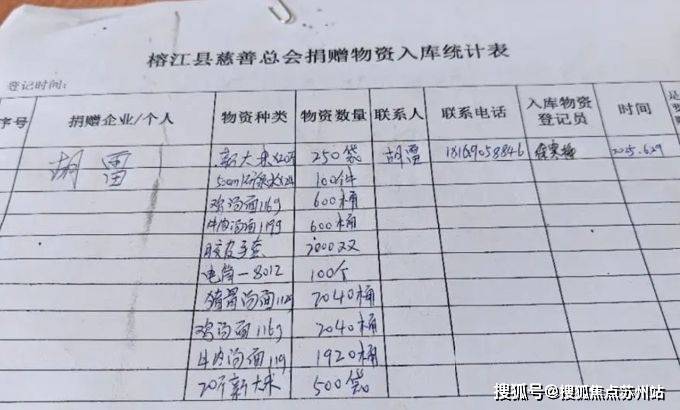 榕江县慈善总会捐赠物资入库统计表
登记时间:
序号 捐赠企业/个人 物资种类 物资数量 联系人 联系电话 入库物资登记员 时间 是
胡雷 新大米 250袋 胡雷 18169058846 2025.6.29
100件
鸡汤面116g 600桶
牛肉汤面119g 600桶
胶皮手套 2000双
电筒-8012 100个
猪骨汤面 2040桶
鸡汤面116g 2040桶
牛肉汤面119 1920桶
20斤新大米 500袋
搜狐号@搜狐焦点苏州站